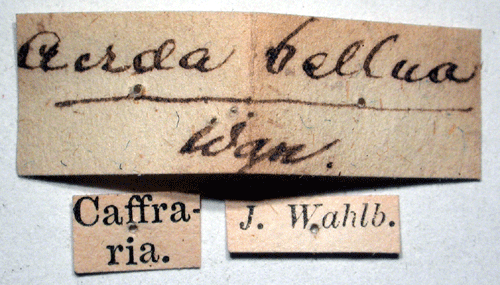 Acrda bellua
Wgn.
Caffra-
ria.
J. Wahlb.